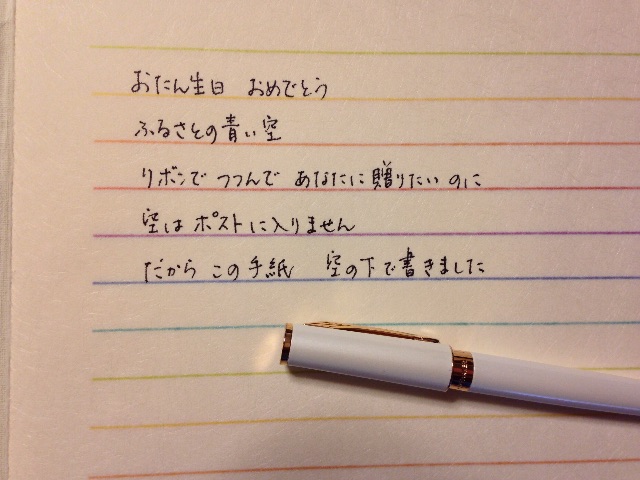 おたん生日 おめでとう
ふるさとの青い空
リボンで つつんで あなたに贈りたい のに
空は ポストに入りません
だから この手紙 空の下で書きました